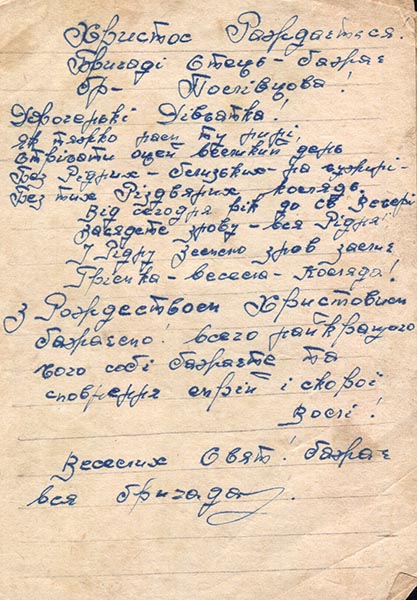 Христос Рождається.
Бригаді Отець - бажає
бр- Послівцова!
Дорогенькі Дівчатка!
Як тяжко нам ту нині,
стрівати оцей великий день
Без Рідних - близьких - на чужині -
Без тих Різдвяних коляд.
Від сегодня рік до св Вечері
Засядете знову - вся Рідня!
І Рідну Землю знов
Гріночка - весела - Коляда!
З Рождеством Христовим
бажаємо! всего найкращого
чого собі бажаєте та
сповнення мрій і скорої
Волі!
Веселих Свят! бажає
вся бригада.